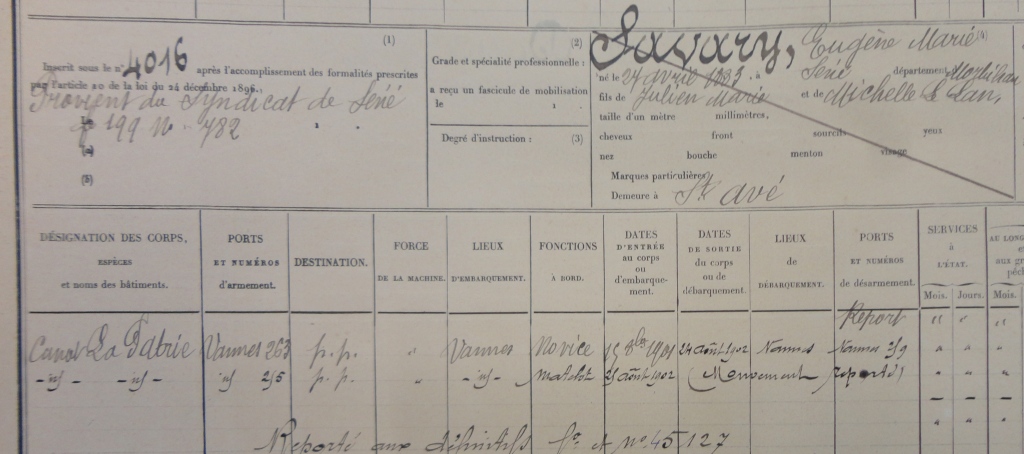 (1)
Inscrit sous le n° 4016 après l'accomplissement des formalités prescrites
par l'article 20 de la loi du 24 décembre 1896.
Provient du Syndicat de Séné
f° 199 N° 782
(4)
(5)
(2)
Grade et spécialité professionnelle :
a reçu un fascicule de mobilisation
le 1 .
Degré d'instruction : (3)
Savary, Eugène Marie (4)
né le 24 avril 1883 à Séné département Morbihan
fils de Julien Marie et de Michelle Le Lan,
taille d'un mètre millimètres,
cheveux front sourcils yeux
nez bouche menton visage
Marques particulières
Demeure à St Avé
DÉSIGNATION DES CORPS,
ESPÈCES
et noms des bâtiments.
PORTS
ET NUMÉROS
d'armement.
DESTINATION.
FORCE
DE LA MACHINE.
LIEUX
D'EMBARQUEMENT.
FONCTIONS
À BORD.
DATES
D'ENTRÉE
au corps
ou
d'embarque-
ment.
DATES
DE SORTIE
du corps
ou de
débarquement.
LIEUX
de
DÉBARQUEMENT.
PORTS
ET NUMÉROS
de désarmement.
SERVICES
à
L'ÉTAT.
Mois. Jours.
AU LONG
Mois.
Report " " "
Canot La Patrie Vannes 263 p.p. " Vannes Novice 15 8bre 1901 24 août 1902 Vannes Vannes 219 " " "
-id- -id- id 215 p.p. " -id- matelot 25 août 1902 (Mouvement reporté) " " "
Reporté aux définitifs f° et n° 45127